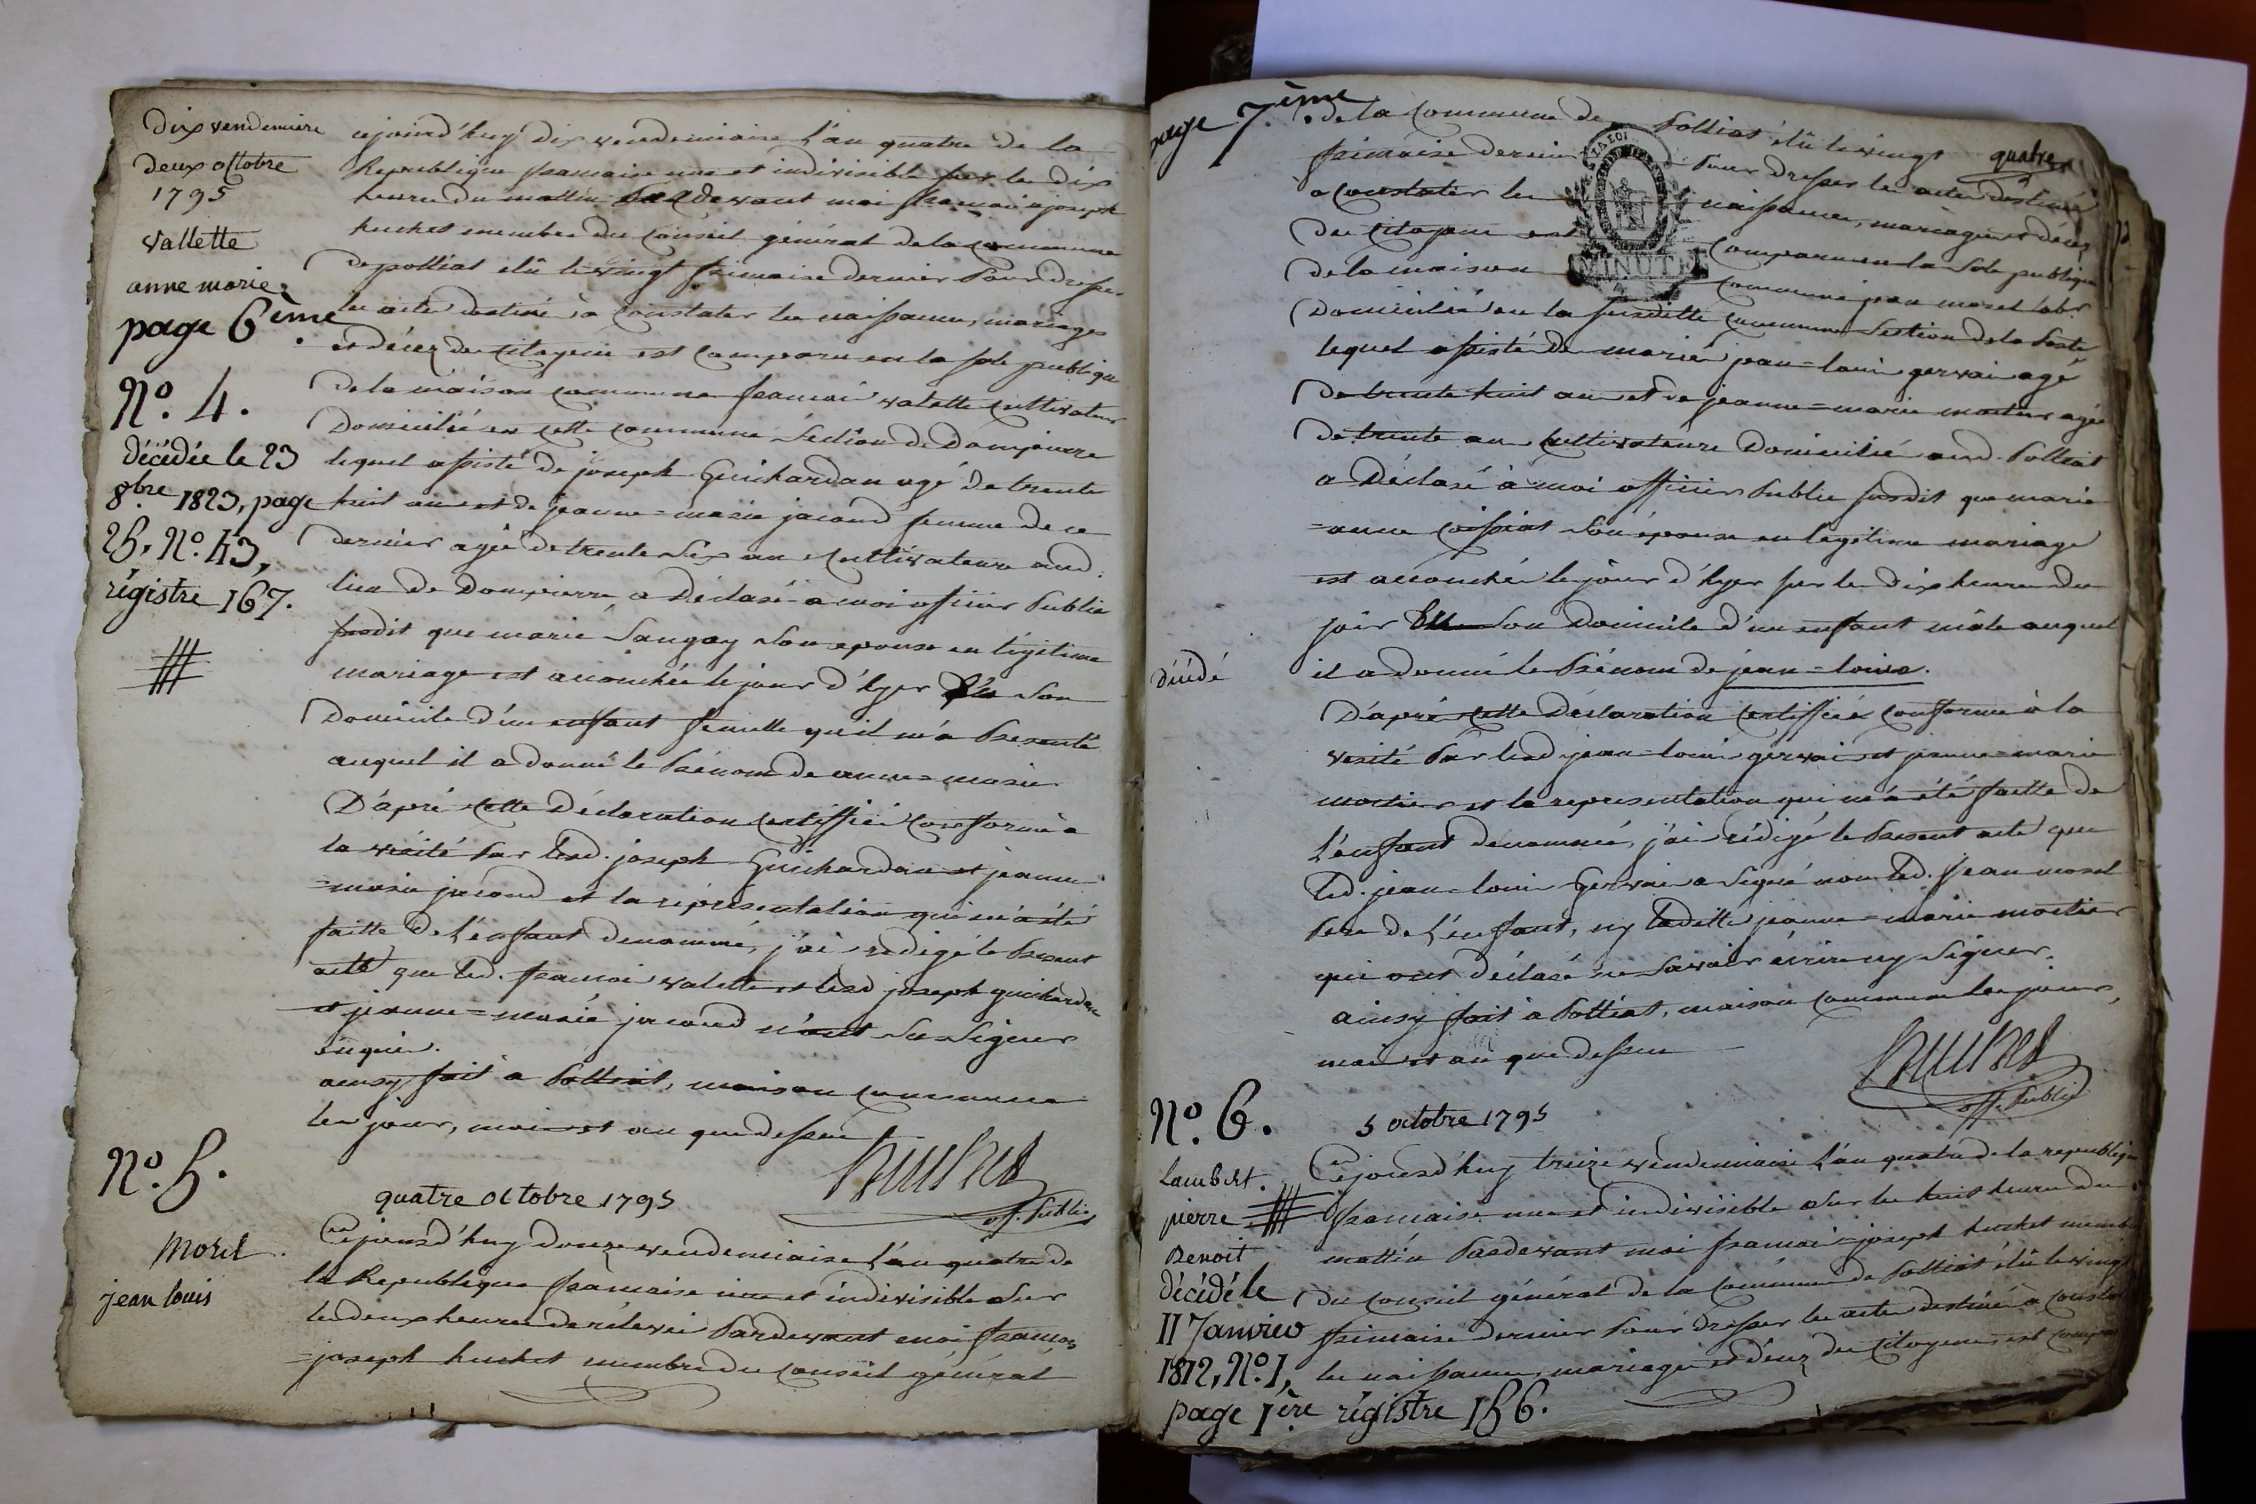 Dix vendemiere
deux octobre
1795
vallette
anne marie
page 6ème.
N°. 4.
décédée le 23
8bre 1823, page
25, N°. 43,
régistre 167.
cejourd'huy dix vendemiaire l'an quatre de la
Republique francaise une et indivisible sur les dix
heures du mattin Pardevant moi francois joseph
huchet membre du Conseil général de la commune
de polliat élû le vingt frimaire dernier Pour dresser
les actes destiné à constater les naissances, mariages
et décez des Citoyens est comparu en la sale publique
de la maison commune francois valette cultivateur
Domicilié en cette commune Section de Dompierre
lequel assisté de joseph Guichardan agé de trente
huit ans et de jeanne=marie jacoud femme de ce
dernier agée de trente six ans Cultivateurs aud.
lieu de Dompierre a Déclaré a moi officier Public
susdit que marie Sangoy Son epouse en légitime
mariage est accouchée le jour d'hyer Son
Domicile d'un enfant femelle qu'il m'a Presenté
auquel il a donné le Prénom de anne=marie
D'apré cette Déclaration certiffiée Conforme a
la vérité Par lesd. joseph Guichardan et jeanne
=marie jacoud et la réprésentation qui m'a été
faitte de l'enfant denommé, j'ai redigé le Present
acte que led. francoi valette et lesd joseph guichardan
et jeanne=marie jacoud n'ont Su Signer
enquis.
ainsy fait a Polliat, maison commune
les jour, moi et an que dessus
huchet
off. Public
N°. 5.
quatre octobre 1795
Morel
jean louis
Cejourd'huy douze vendemiaire l'an quatre de
la Republique francaise une et indivisible Sur
les deux heures de rélevée Pardevant moi francois
=joseph huchet membre du Conseil général
page 7.ème
quatre
de la Commune de Polliat élû le vingt
frimaire dernier Pour dresser les actes destiné
a constater les naissances, mariages et décez
des Citoyens est comparu en la Sale publique
de la maison commune jean morel labr
Domicilié en la susditte commune Section de la Poste
lequel assisté de marié jean=louis gervai agé
de trente huit ans et de jeanne=marie mortier agée
de trente ans Cultivateurs Domicilié aud. Polliat
a Déclaré à moi officier Public susdit que marie
=anne Son épouse en légitime mariage
est accouchée le jour d'hyer sur les dix heures du
soir Son Domicile d'un enfant mâle auquel
décédé
il a donné le Prénom de jean=louis.
D'apré cette Déclaration certiffiée Conforme à la
vérité Par lesd jean=louis gervai et jeanne=marie
mortier et la representation qui m'a été faitte de
l'enfant denommé, j'ai rédigé le Present acte que
led. jean=louis Gervai a Signé non led. jean morel
Pere de l'enfant, ny laditte jeanne=marie mortier
qui ont déclaré ne Savoir écrire ny Signer.
ainsy fait à Polliat, maison commune les jour,
moi et an que dessus
huchet
off. Public
N°. 6.
5 octobre 1795
Lambert.
pierre
Benoit
décédé le
11 Janvier
1812, N°. 1,
page 1ère régistre 156.
Cejourd'huy treize vendemiaire l'an quatre de la republique
francaise une et indivisible Sur les huit heures du
mattin Pardevant moi francois=joseph huchet membre
du conseil général de la Commune de Polliat élû le vingt
frimaire dernier Pour dresser les actes destiné à constater
les naissances, mariages et décez des Citoyens est comparu
MINUTE